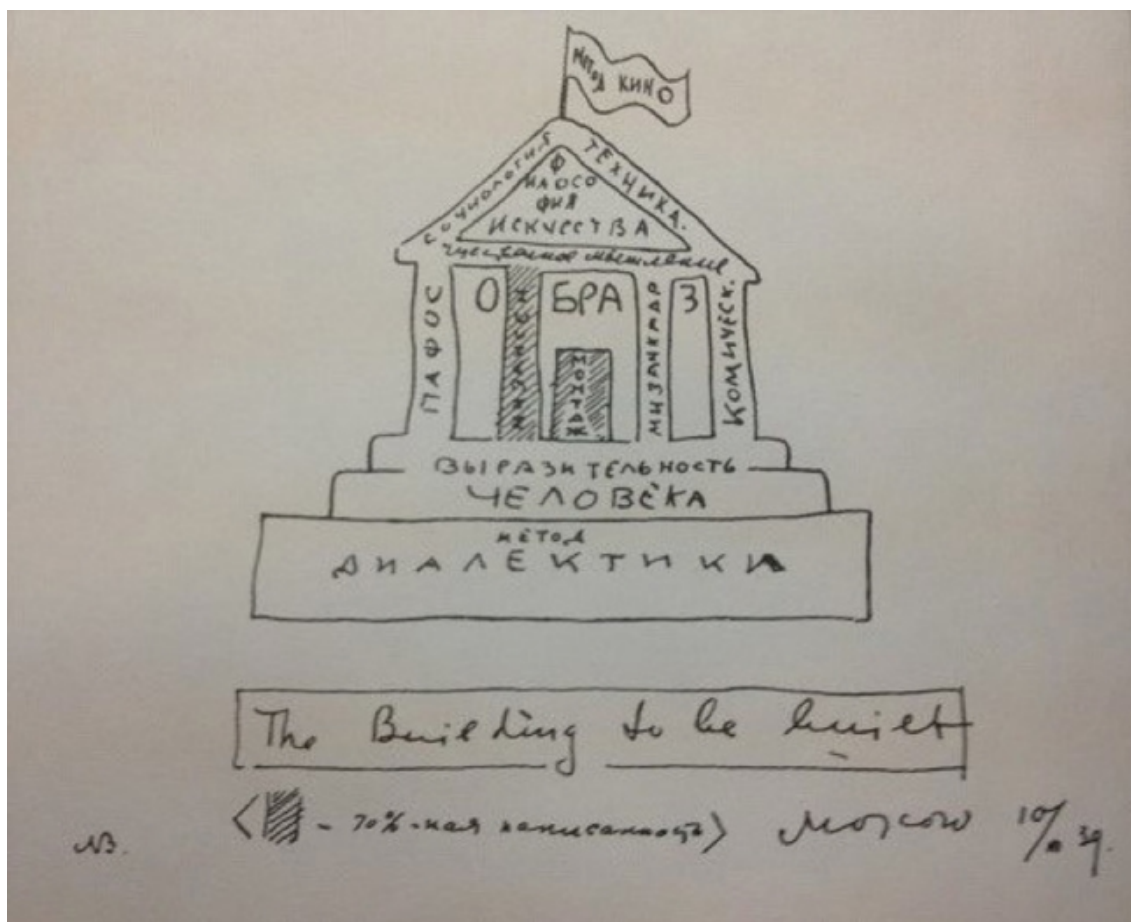 МЕТОД КИНО
СОЦИОЛОГИЯ
ТЕХНИКА.
Ф
ИЛОСО
ФИЯ
ИСКУССТВА
чувственное мышление
ПАФОС
О
МИЗАНСЦЕН
БРА
МОНТАЖ
МИЗАНКАДР
З
КОМИЧЕСК.
ВЫРАЗИТЕЛЬНОСТЬ
ЧЕЛОВЕКА
МЕТОД
ДИАЛЕКТИКИ
The Building to be built
< - 70%-ная написанность> Moscow
NB.